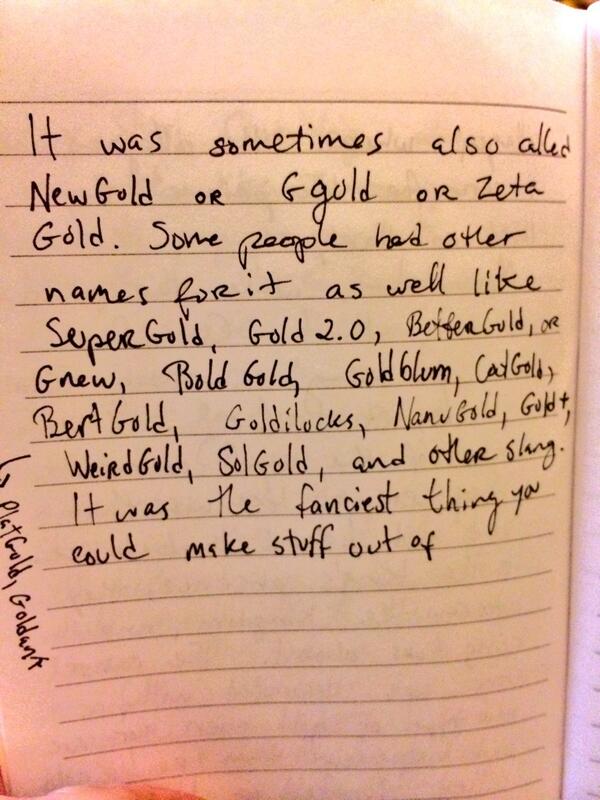 It was sometimes also called
New Gold or Ggold or Zeta
Gold. Some people had other
names for it as well like
SuperGold, Gold 2.0, BetterGold, or
Gnew, Bold Gold, Goldblum, CatGold,
Bert Gold, Goldilocks, NanuGold, Gold+,
WeirdGold, SolGold, and other slang.
It was the fanciest thing you
could make stuff out of
↳ PlatGold, Goldant